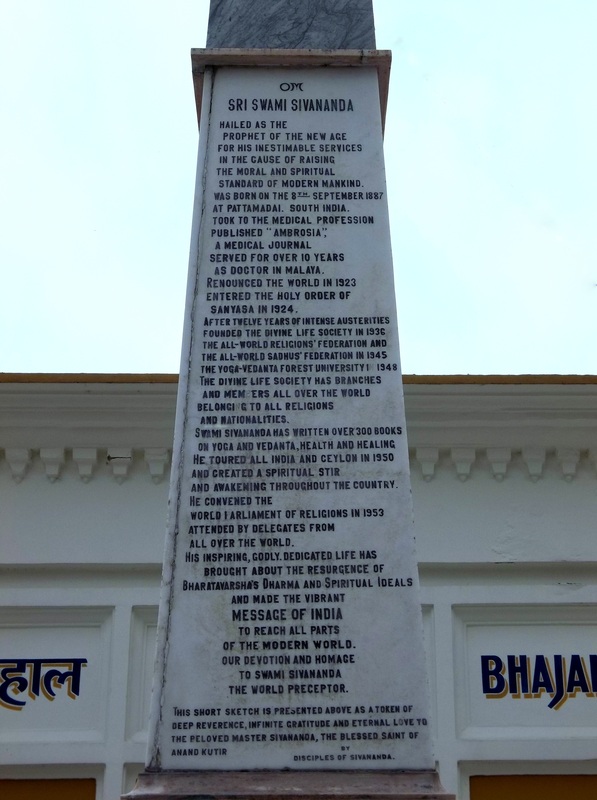 OM
SRI SWAMI SIVANANDA
HAILED AS THE
PROPHET OF THE NEW AGE
FOR HIS INESTIMABLE SERVICES
IN THE CAUSE OF RAISING
THE MORAL AND SPIRITUAL
STANDARD OF MODERN MANKIND.
WAS BORN ON THE 8TH SEPTEMBER 1887
AT PATTAMADAI. SOUTH INDIA.
TOOK TO THE MEDICAL PROFESSION
PUBLISHED "AMBROSIA",
A MEDICAL JOURNAL
SERVED FOR OVER 10 YEARS
AS DOCTOR IN MALAYA.
RENOUNCED THE WORLD IN 1923
ENTERED THE HOLY ORDER OF
SANYASA IN 1924.
AFTER TWELVE YEARS OF INTENSE AUSTERITIES
FOUNDED THE DIVINE LIFE SOCIETY IN 1936
THE ALL-WORLD RELIGIONS' FEDERATION AND
THE ALL-WORLD SADHUS' FEDERATION IN 1945
THE YOGA-VEDANTA FOREST UNIVERSITY I 1948
THE DIVINE LIFE SOCIETY HAS BRANCHES
AND MEM ERS ALL OVER THE WORLD
BELONGI G TO ALL RELIGIONS
AND NATIONALITIES.
SWAMI SIVANANDA HAS WRITTEN OVER 300 BOOKS
ON YOGA AND VEDANTA, HEALTH AND HEALING
HE TOURED ALL INDIA AND CEYLON IN 1950
AND CREATED A SPIRITUAL STIR
AND AWAKENING THROUGHOUT THE COUNTRY.
HE CONVENED THE
WORLD PARLIAMENT OF RELIGIONS IN 1953
ATTENDED BY DELEGATES FROM
ALL OVER THE WORLD.
HIS INSPIRING, GODLY, DEDICATED LIFE HAS
BROUGHT ABOUT THE RESURGENCE OF
BHARATAVARSHA'S DHARMA AND SPIRITUAL IDEALS
AND MADE THE VIBRANT
MESSAGE OF INDIA
TO REACH ALL PARTS
OF THE MODERN WORLD.
OUR DEVOTION AND HOMAGE
TO SWAMI SIVANANDA
THE WORLD PRECEPTOR.
THIS SHORT SKETCH IS PRESENTED ABOVE AS A TOKEN OF
DEEP REVERENCE, INFINITE GRATITUDE AND ETERNAL LOVE TO
THE PELOVED MASTER SIVANANDA, THE BLESSED SAINT OF
ANAND KUTIR
BY
DISCIPLES OF SIVANANDA.
हाल
BHAJA